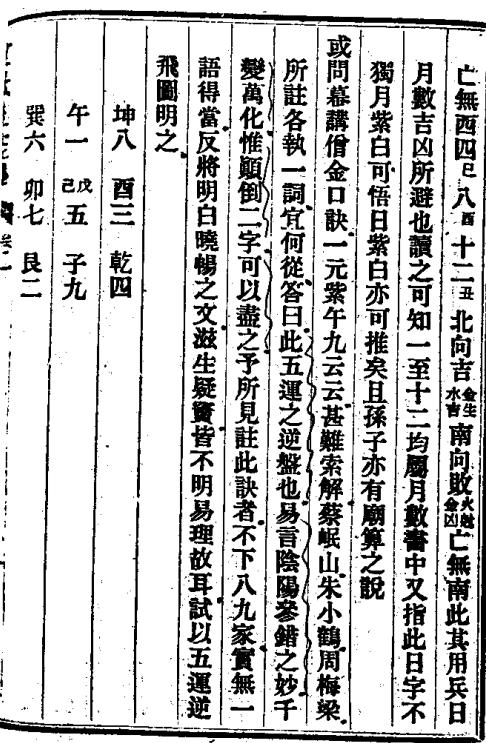 亡無酉四巳八酉十二丑北向吉金生水吉南向敗火尅金凶亡無南此其用兵日
月數吉凶所避也讀之可知一至十二均屬月數書中又指此日字不
獨月紫白可悟日紫白亦可推矣且孫子亦有廟算之說
或問幕講僧金口訣一元紫午九云云甚難索解蔡岷山朱小鶴周梅梁
所註各執一詞宜何從答曰此五運之逆盤也易言陰陽參錯之妙千
變萬化惟顚倒二字可以盡之予所見註此訣者不下八九家實無一
語得當反將明白曉暢之文滋生疑竇皆不明易理故耳試以五運逆
飛圖明之
坤八 酉三 乾四
午一 戊己五 子九
巽六 卯七 艮二